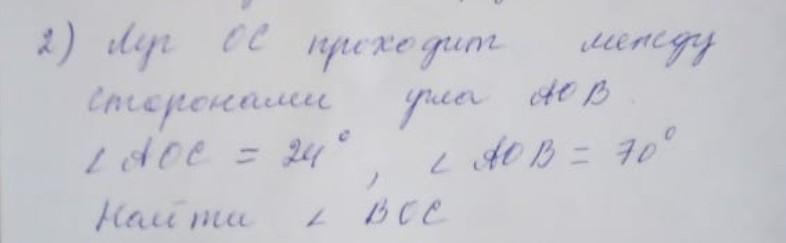 2) Луч ОС проходит между
сторонами угла АОВ.
∠АОС = 24°, ∠АОВ = 70°
Найти ∠ ВОС